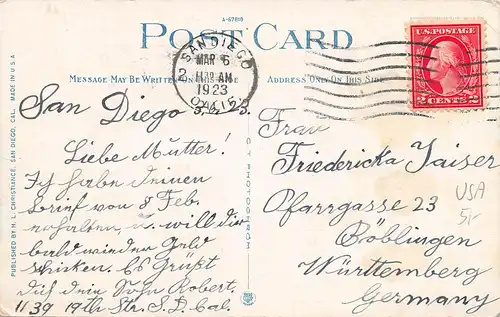 A-67618
POST CARD
MESSAGE MAY BE WRITTEN ON THIS SIDE
ADDRESS ONLY ON THIS SIDE
SAN DIEGO
MAR 6
AM
1923
CALIF.
2
U.S. POSTAGE
2 CENTS 2
PUBLISHED BY H. L. CHRISTIANCE, SAN DIEGO, CAL. MADE IN U.S.A.
San Diego 23.
Liebe Mutter!
Ich habe deinen
Brief vom 8 Feb.
erhalten, u. will dir
bald wieder Geld
schicken. Es Grüßt
dich dein Sohn Robert.
1139 19th Str. S.D. Cal.
Frau
Friedericka Kaiser
Pfarrgasse 23
Böblingen
Württemberg
Germany
USA